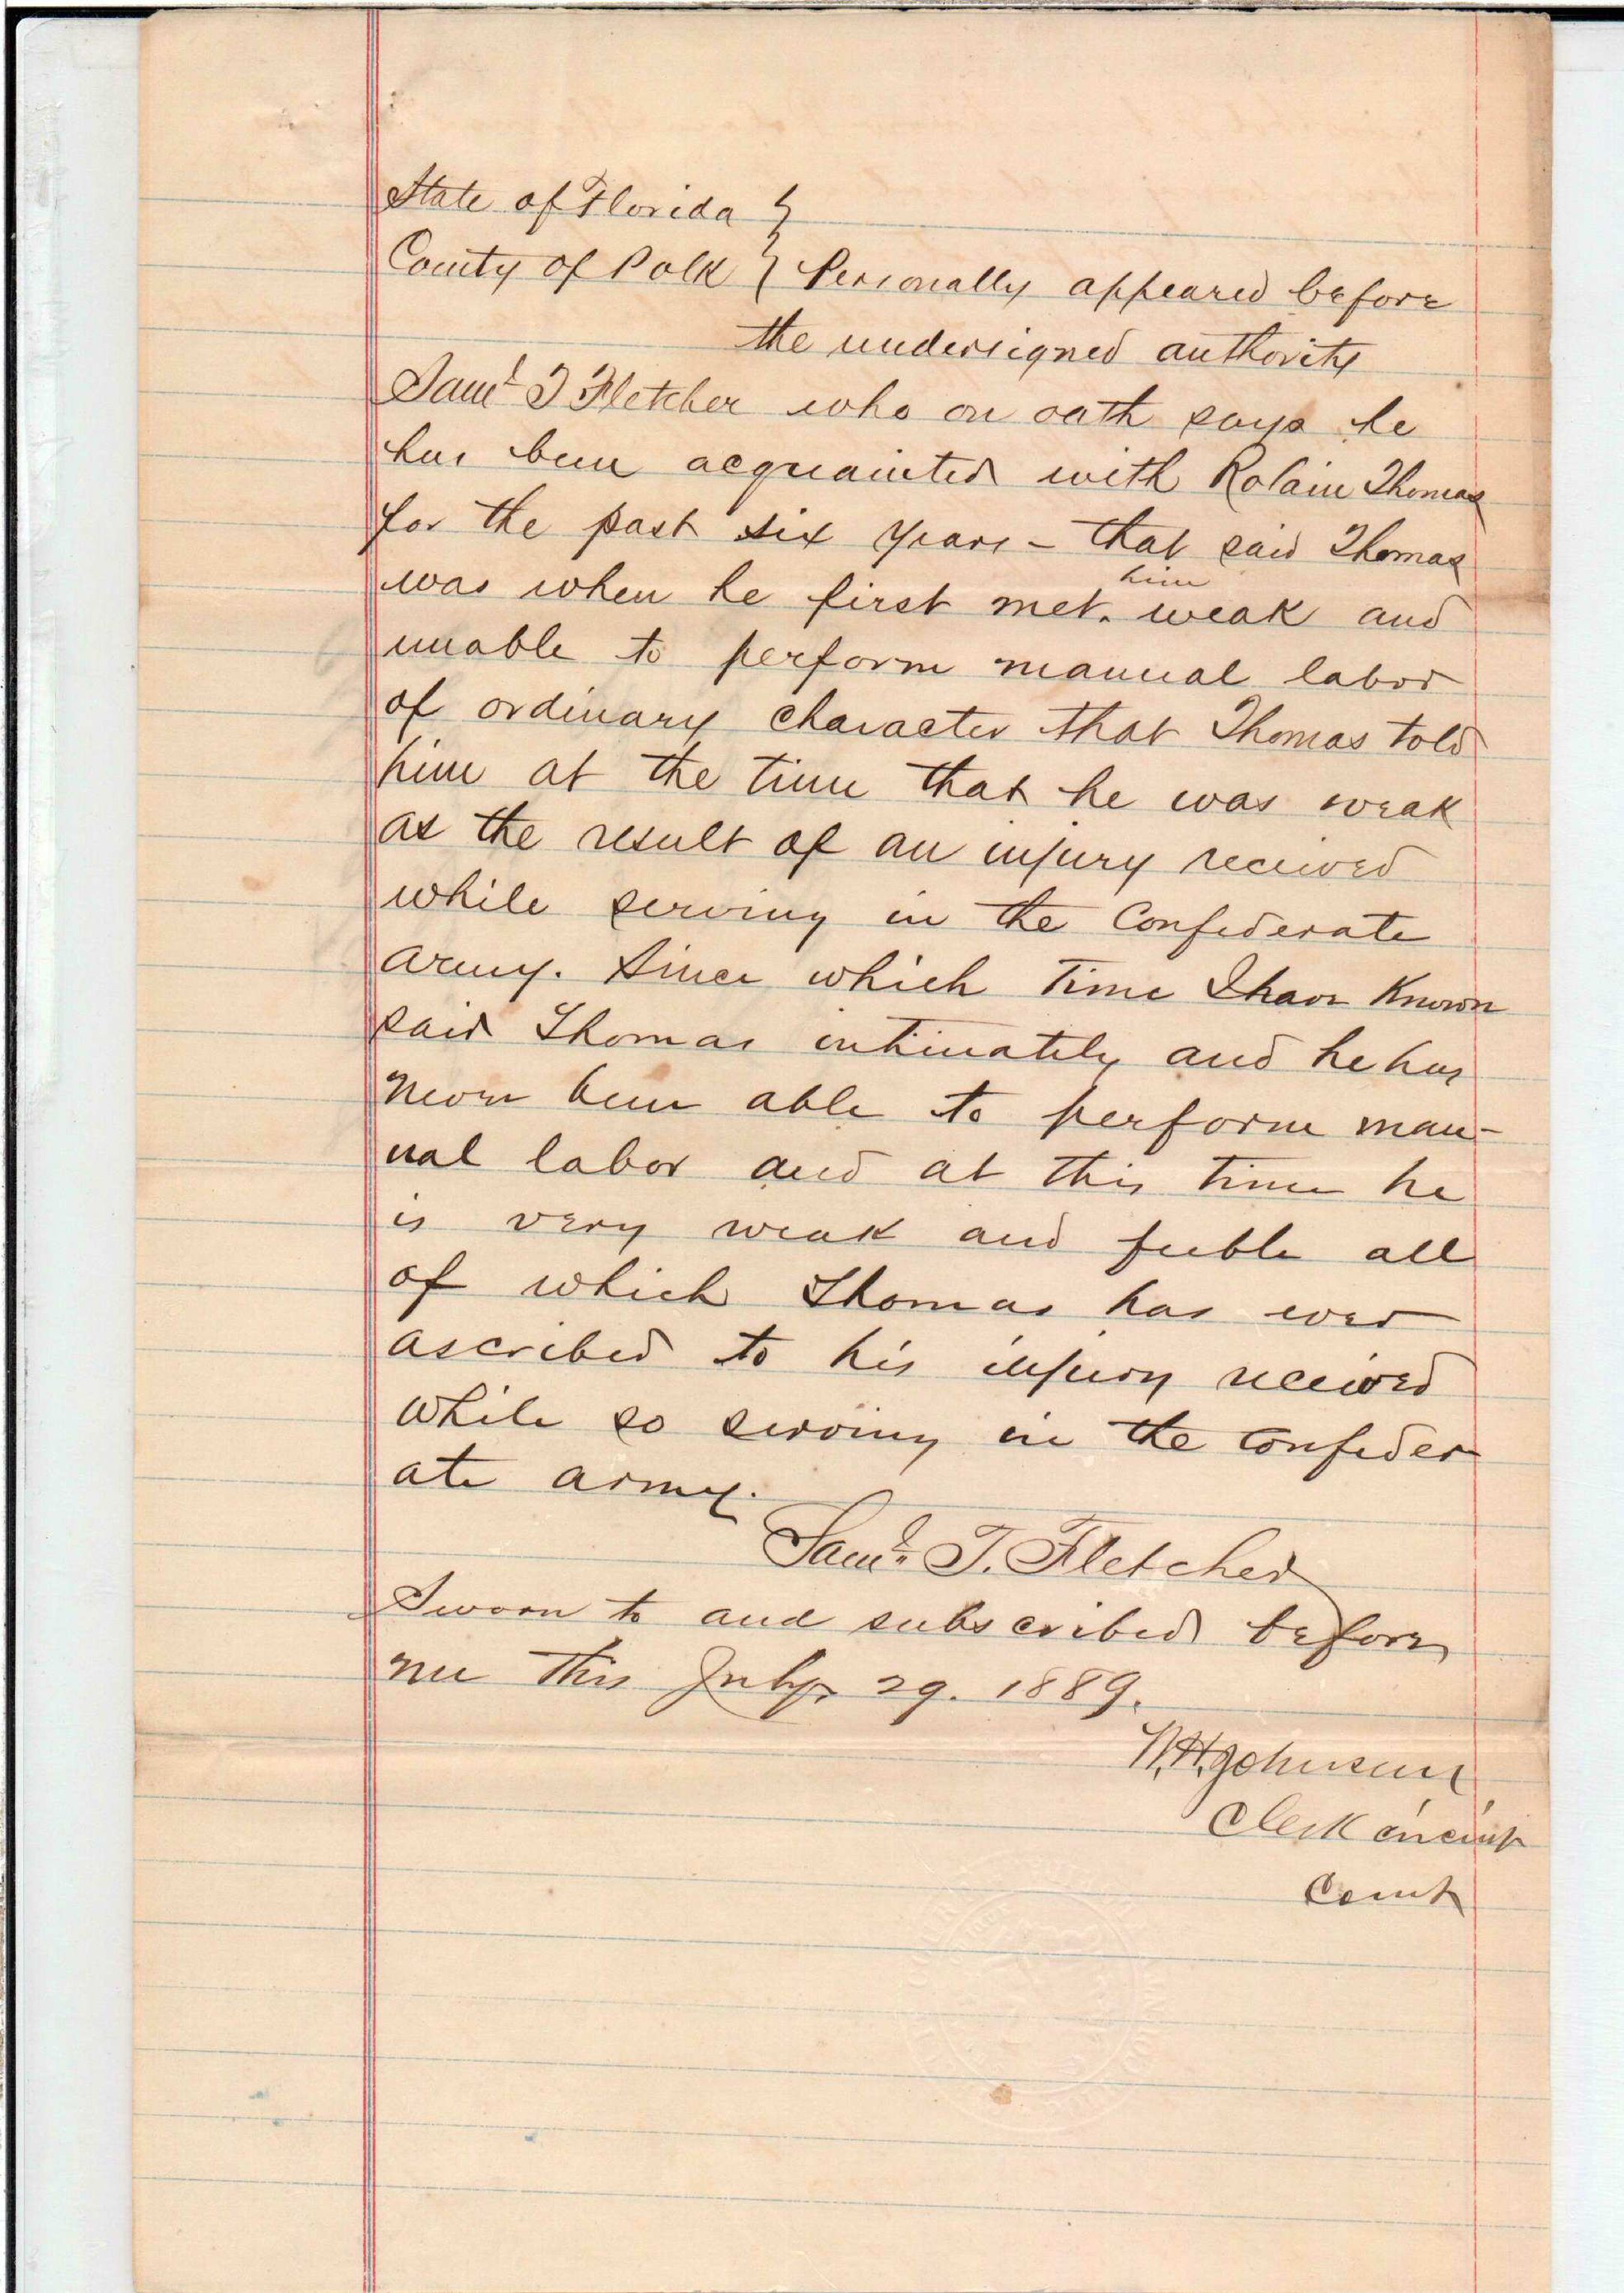 State of Florida }
County of Polk } Personally appeared before
the undersigned authority
Saml T Fletcher who on oath says he
has been acquainted with Thomas
for the past six years - that said Thomas
was when he first met. him weak and
unable to perform manual labor
of ordinary character that Thomas told
him at the time that he was weak
as the result of an injury received
while serving in the Confederate
army. Since which time I have known
said Thomas intimately and he has
never been able to perform man-
ual labor and at this time he
is very weak and feeble all
of which Thomas has ever
ascribed to his injury received
while so serving in the confeder
ate army.
Saml. T. Fletcher
Sworn to and subscribed before
me this July 29. 1889.
W.H. Johnson
Clerk Circuit
Court